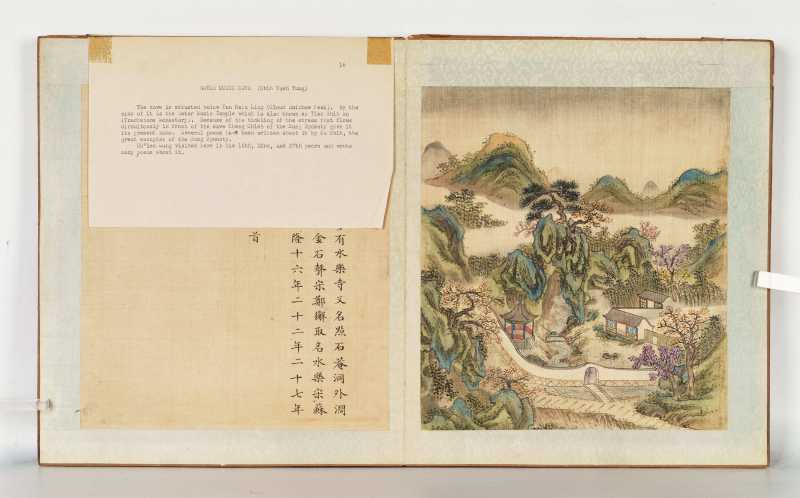 WATER MUSIC CAVE
The cave is situated below Yen Hsia Ling (Cloud Peak). By the
side of it is the Water Music Temple which is also known as Tien Shih An
Monastery). Because of the tinkling of the stream that flows
circuitously in front of the cave Cheng Chieh of the Sung Dynasty gave it
its present name. Several poems have been written about it by Su Shih, the
great of the Sung Dynasty.
Ch'ien Lung visited here in his 16th, 22nd, and 27th years and wrote
many poems about it.
有水樂寺又名㸃石菴洞外澗
金石聲宋鄭獬取名水樂宋蘇
隆十六年二十二年二十七年
首